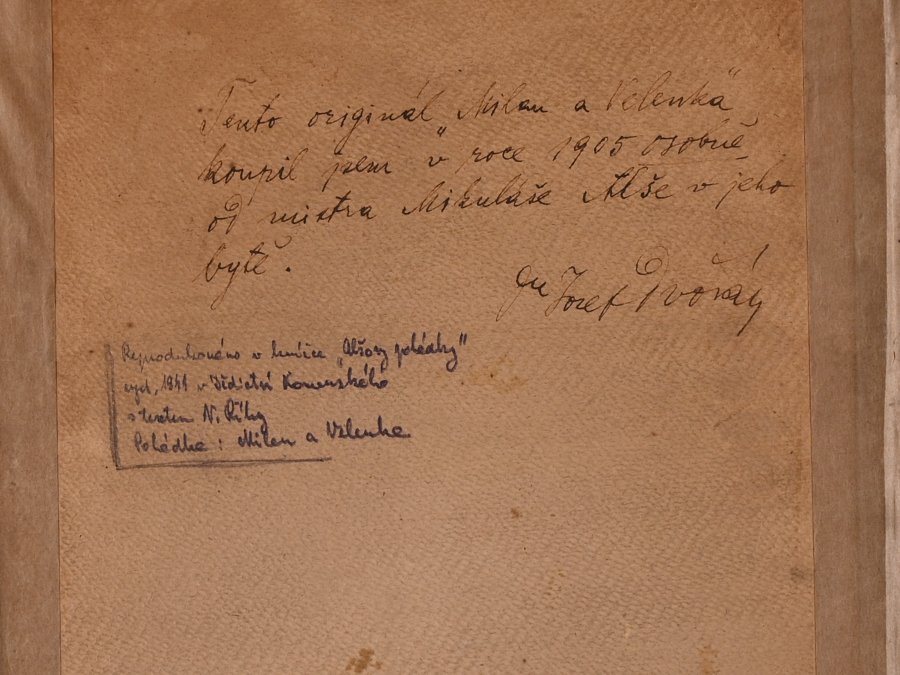 Tento originál „Milan a Velenka"
koupil jsem v roce 1905 osobně
od mistra Mikuláše Alše v jeho
bytě.
Josef Dvořák
Reprodukováno v knížce „Alšovy pohádky"
vyd. v Dědictví Komenského
s textem V. Říhy
Pohádka: Milan a Velenka